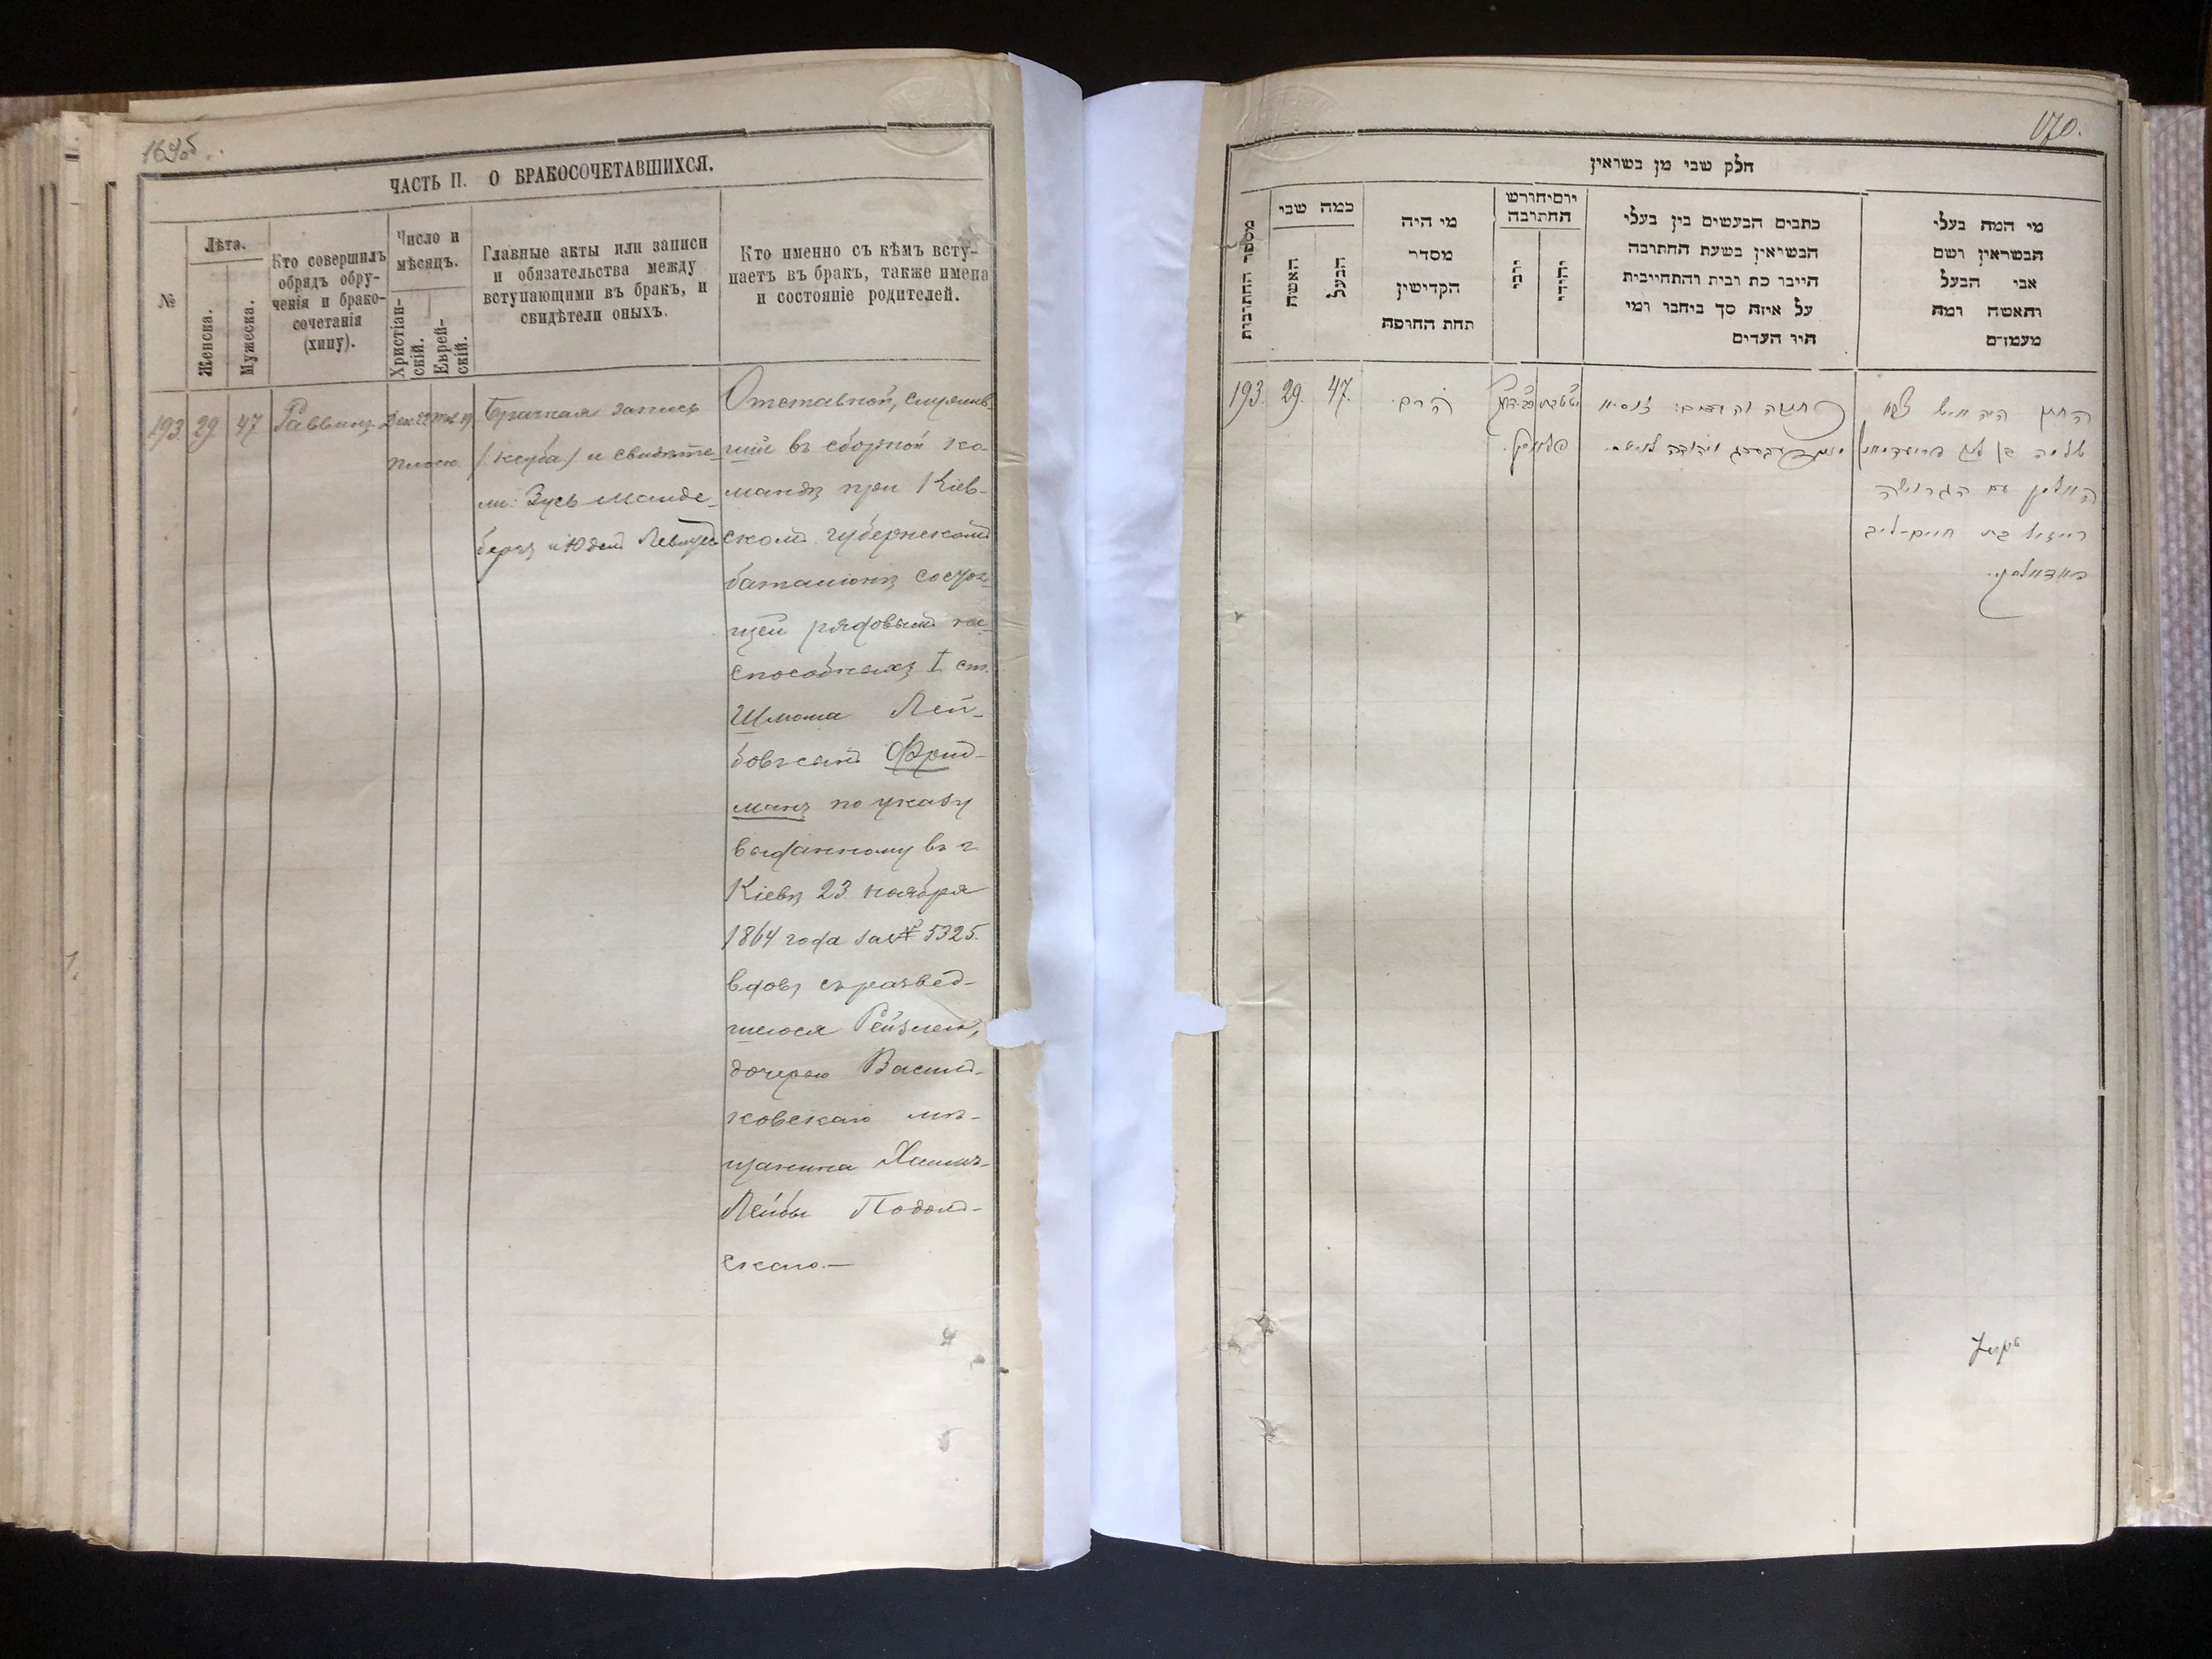 169об.
ЧАСТЬ II. О БРАКОСОЧЕТАВШИХСЯ.
№
Лѣта.
Женска.
Мужеска.
Кто совершилъ
обрядъ обру-
ченія и брако-
сочетанія
(хипу).
Число и
мѣсяцъ.
Христіан-
скій.
Еврей-
скій.
Главные акты или записи
и обязательства между
вступающими въ бракъ, и
свидѣтели оныхъ.
Кто именно съ кѣмъ всту-
паетъ въ бракъ, также имена
и состояніе родителей.
193.
29.
47
Раввинъ.
Дек. 22
Брачная запись
(ксуба) и свидѣте-
ли: Зусь
берг и Юдель
Отставной, служив-
шій въ сборной ко-
мандѣ при Кіев-
скомъ губернскомъ
баталіонѣ состоя-
щей рядовымъ не-
способныхъ I ст.
Шлёма Лей-
бовъ сынъ Фрид-
манъ по указу
выданному въ г.
Кіевѣ 23 ноября
1864 года за № 5325.
вдовъ съ развед-
шеюся Рейзлею,
дочерью Василь-
ковскаго мѣ-
щанина Хаимъ-
Лейбы Подоль-
скаго.—
170.
חלק שבי מן בשראין
מספר החתובות
כמה שבי
האשה
הבעל
מי היה
מסדר
הקדישין
תחת החופה
יום וחורש
החתובה
יובי
יהודי
כתבים הבעשים בין בעלי
הבשראין בשעת החתובה
הייבו כת ובית והתחייבית
על איזה סך ביחבו ומי
היו העדים
מי המה בעלי
הבשראין ושם
אבי הבעל
והאשה ומה
מעמדם
193.
29.
47.
הרב.
החתן היה איש צבא
שלמה בן ליב פרידמאן
האלמן עם הגרושה
רייזיל בת חיים-ליב
פאדאלסקי.